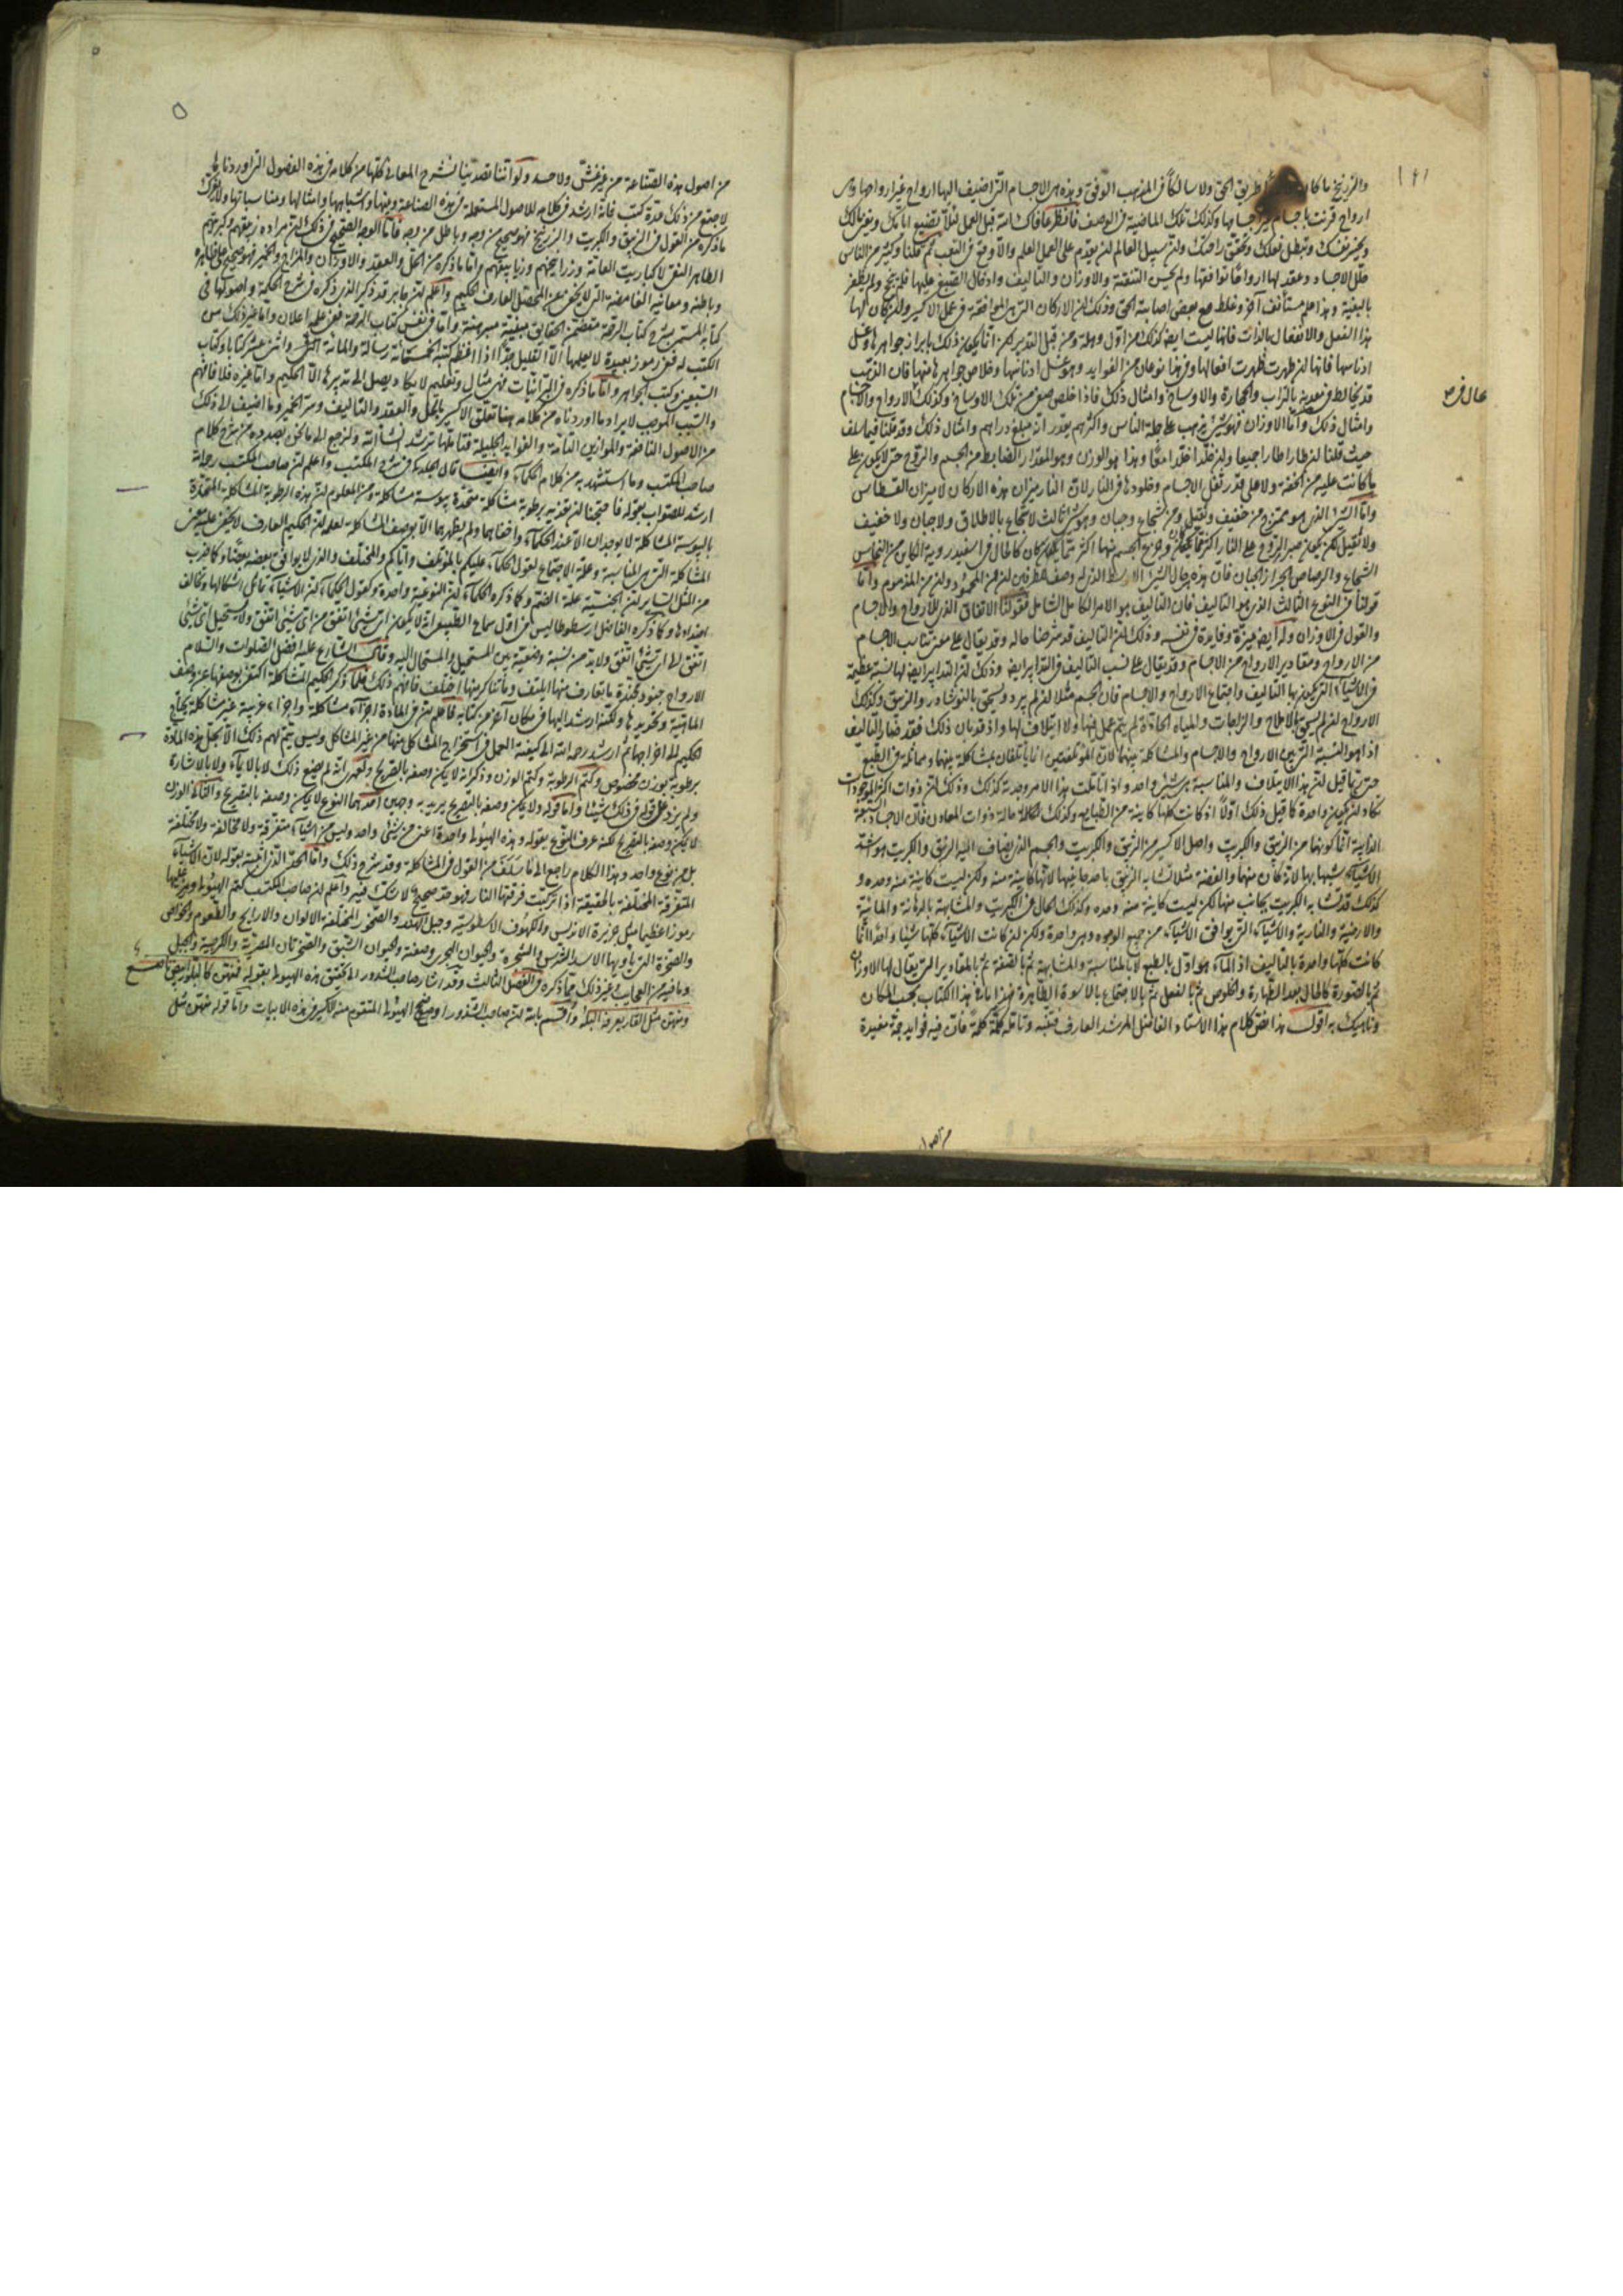 والزرنيخ ما كان طريق الحق ولا سالكا في المذهب الوثوق وهذه هي الاجسام التي اضيف اليها ارواح غير ارواحها وهي
ارواح قرنت باجسام غير اجسامها وكذلك تلك الماضية في الوصف فانظر عافاك الله قبل العمل لئلا تضيع اما لك
ويخيب وتبطل فعلك وان سبيل العالم ان يقدم على العمل العلم والا وقع في التعب ثم قلنا وكثير من الناس
حلل الاجساد وعقد لها ارواحا توافقها ولم يحسن التنقية والاوزان والتاليف وادخال الصبغ عليها فلم ينجح ولم يظفر
بالبغية وهذا علم مستأنف آخر وغلط مع بعض اصابة الحق وذلك ان الاركان التي هي الموافقة في عمل الاكسير وان كان لها
هذا الفعل والانفعال بالذات فانها ليست ايضا كذلك من اول وهلة ومن قبل التدبير لكن انما يكون ذلك بابراز جواهرها وغسل
ادناسها فانها ان طهرت ظهرت افعالها وفي هذا نوعان من الفوايد وهو غسل ادناسها وخلاص جواهرها منها فان الذهب
قد يخالط في معدنه بالتراب والحجارة والاوساخ وامثال ذلك فاذا خلص صفى من تلك الاوساخ وكذلك الارواح والاجسام
وامثال ذلك واما الاوزان فهو شيء يذهب على جلة الناس واكثرهم يقدر انه مبلغ دراهم وامثال ذلك وقد قلنا فيما سلف
حيث قلنا ان طارا طارا جميعا وان خلدا خلدا معا وهذا هو الوزن وهو المقدار الضابط من الجسم والروح حتى لا يكون على
ما كانت عليه من الخفة ولا على قدر ثقل الاجسام وخلودها في النار لان النار ميزان هذه الاركان لا ميزان القسطاس
واما الشيء الذي هو ممتزج من خفيف وثقيل ومن شجاع وجبان وهو شيء ثالث لا شجاع بالاطلاق ولا جبان ولا خفيف
ولا ثقيل لكن يكون صبر الروح على النار اكثر مما كان وخروج الجسم منها اكثر مما كان كالحال في اسفيدرويه الكاين من النحاس
الشجاع والرصاص الجبان فان هذه حال الشيء الاوسط الذي له وصف الطرفين من المحمود ومن المذموم واما
قولنا في النوع الثالث الذي هو التاليف فان التاليف هو الامر الكامل الشامل فقولنا الاتفاق الذي للارواح والاجسام
والقول في الاوزان وله ايضا ميزة وفايدة في نفسه وذلك ان التاليف قد شرحنا حاله وقد يقال على معنى تناسب الاجسام
من الارواح ومقادير الارواح من الاجسام وقد يقال على نسب التاليف في التدابير ايضا وذلك ان التدابير ايضا لها نسبة عظيمة
في الاشياء التي يكون بها التاليف واجتماع الارواح والاجسام فان الجسم مثلا ان لم يبرد ويسحق بالنوشادر والزيبق وكذلك
الارواح ان لم تسحق بالاملاح والزاجات والمياه الحادة لم يتم عمل فيها ولا ايتلاف لها واذ قد بان ذلك فقد صار التاليف
اذا هو النسبة التي بين الارواح والاجسام والمشاكلة بينهما لان المؤتلفين انما يأتلفان بمشاكلة بينهما ومماثلة في الطبع
حتى ما قيل ان هذا الايتلاف والمناسبة هي شيء واحد واذا تاملت هذا الامر وجدته كذلك وذلك ان ذوات اكثر الموجودات
تكاد ان تكون واحدة كما قيل ذلك اولا اذ كانت كلها كاينة من الطبايع وكذلك الحالة حالة ذوات المعادن فان الاجساد السبعة
الذايبة انما كونها من الزيبق والكبريت واصل الاكسير من الزيبق والكبريت والجسم الذي يضاف اليه الزيبق والكبريت هو اشد
الاشياء شبها بهما لانه كان منهما والفضة مثلا تشابه الزيبق باحد جانبيها لانها كاينة منه ولكن ليست كاينة منه وحده و
كذلك قد تشابه الكبريت بجانب منها لكن ليست كاينة منه وحده وكذلك الحال في الكبريت والمشابهة بالدهانة والمائية
والارضية والنارية والاشياء التي يوافق الاشياء من جميع الوجوه وهي واحدة ولكن ان كانت الاشياء كلها شيئا واحدا انما
كانت كلها واحدة بالتاليف اذ الماء هو اول بالطبع لا بالمناسبة والمشابهة ثم بالصفة ثم بالمقادير التي يقال لها الاوزان
ثم بالصورة كالحال بعد الطهارة والخلوص ثم بالفعل ثم بالاجتماع بالاسوة الظاهرة فهذا ما في هذا الكتاب بحسب المكان
وناهيك به اقول هذا نص كلام هذا الاستاد الفاضل المرشد العارف فتنبه وتامله كلمة كلمة فان فيه فوايد جمة مفيدة
من اصول
من اصول هذه الصناعة من غير غش ولا حسد ولو اننا تصدينا لشرح المعاني كلها من كلامه في هذه الفصول التي اوردناها
لاجتمع من ذلك عدة كتب فانه ارشد في كلامه للاصول المستعملة في هذه الصناعة ومنها واشباهها وامثالها ومناسباتها
ما ذكره من القول في الزيبق والكبريت والزرنيخ فهو صحيح من وجه وباطل من وجه فاما الوجه الصحيح في ذلك ان مراده زيبقهم وكبريتهم
الطاهر النقي لا كباريت العامة وزرانيخهم وزيابيقهم واما ما ذكره من الحل والعقد والاوزان والمزاج والتخمير فهو صحيح على ظاهره
وباطنه ومعانيه الغامضة التي لا تخفى عن المحصل العارف الحكيم واعلم ان جابر قد ذكر الذي ذكره في شرح الحكمة واصولها في
كتابه المسمى بشرح كتاب الرحمة متضمن الحقايق مبينة مبرهنة واما في نفس كتاب الرحمة فمن علم اعلان واما غير ذلك من
الكتب له فهي رموز بعيدة لا يعلمها الا القليل جدا اذا اعتظ كتبه الخمسمائة رسالة والمائة اثنى عشر كتابا وكتاب
السبعين وكتب الجواهر واما ما ذكره في التراتيات فهي مثال وتعليم لا يكاد يصل الى تدبيرها الا الحكيم واما غيره فلا فافهم
والسبب الموجب لايراد ما اوردناه من كلامه هنا تعلق الاكسير بالحل والعقد والتاليف وسر الخمير وما اضيف الى ذلك
من الاصول النافعة والموازين التامة والفوايد الجليلة فتاملها ترشد انشا الله ولنرجع الى ما كنا بصدده من شرح كلام
صاحب المكتسب وما استشهد به من كلام الحكماء وايضا قال الجلدكي في شرح المكتسب واعلم ان صاحب المكتسب رحمه الله
ارشد للصواب بقوله فاحتجنا ان نغذيه برطوبة مشاكلة متحدة بيبوسة مشاكلة ومن المعلوم ان هذه الرطوبة المشاكلة المتحدة
باليبوسة المشاكلة لا يوجدان الا عند الحكماء واخفاهما ولم يظهرهما الا بوصف المشاكلة لعلمه ان الحكيم العارف لا تخفى عليه عين
المشاكلة التي هي المناسبة وعلة الاجتماع لقول الحكماء عليكم بالمؤتلف واياكم والمختلف والذي لا يوافق بعضه بعضا وكما ضرب
من المثل الساير ان الجنسية علة الضم وكما ذكره الحكماء ان النوعية واحدة وكقول الحكماء ان الاشياء تالف اشكالها وتخالف
اضدادها وكما ذكره الفاضل ارسطوطاليس في اول سماع الطبيعي انه لا يكون اي شيء اتفق من اي شيء اتفق ولا يستحيل اي شيء
اتفق الى اي شيء اتفق ولا بد من نسبة وضعية بين المستحيل والمستحال اليه وقال الشارع عليه افضل الصلوات والسلام
الارواح جنود مجندة ما تعارف منها ائتلف وما تناكر منها اختلف فافهم ذلك فلما ذكر الحكيم المشاكلة اكتفى بوصفها عن وصف
الماهية وتحديدها ولكنه ارشد اليها في مكان آخر من كتابه فاعلم ان في المادة اجزاء مشاكلة واجزاء غريبة غير مشاكلة يحتاج
الحكيم الى اخراجها ثم ارشد رحمه الله الى كيفية العمل في استخراج المشاكل منها من غير المشاكل وليس يتم لهم ذلك الا بحل هذه المادة
برطوبة بوزن مخصوص وكتم الرطوبة وكتم الوزن وذكر انه لا يمكن وصفه بالتصريح ولعمر الله لم يضع ذلك لا بالايماء ولا بالاشارة
ولم يزد على قوله في ذلك شيئا واما قوله ولا يمكن وصفه بالتصريح يريد به وجهين احدهما النوع لا يمكن وصفه بالتصريح والثاني الوزن
لا يمكن وصفه بالتصريح لكنه عرف النوع بقوله وهذه الهيولا واحدة اعني من شيء واحد وليس من اشياء متفرقة ولا مخالفة ولا مختلفة
بل من نوع واحد وهذا الكلام راجع الى ما سلف من القول في المشاكلة وقد شرح ذلك واما الحد الذي اثبته بقوله لان الاشياء
المتفرقة المختلفة بالحقيقة اذا تركبت فرقتها النار فهو حد صحيح لا شك فيه واعلم ان صاحب المكتسب كتم الهيولا ورمز عليها
رموزا عظيما مثل جزيرة الاندلس والكهوف الاسطوسية وجبل الهند والصخور المختلفة الالوان والارايح والطعوم والخواص
والصخرة التي ياويها الاسد المفترس والشجرة والحيوان البحري وصفته والحيوان الشبق والصخرتان المصرية والكرمية والجبل
وما فيه من العجايب وغير ذلك مما ذكره في الفصل الثالث وقد اشار صاحب الشذور الى تحقيق هذه الهيولا بقوله فمنهن كالبلور ابيض ناصع
ومنهن مثل القار يعرفه البله واقسم بالله ان صاحب الشذور اوضح الهيولا المتقوم منه الاكسير في هذه الابيات واما قوله منهن مثل